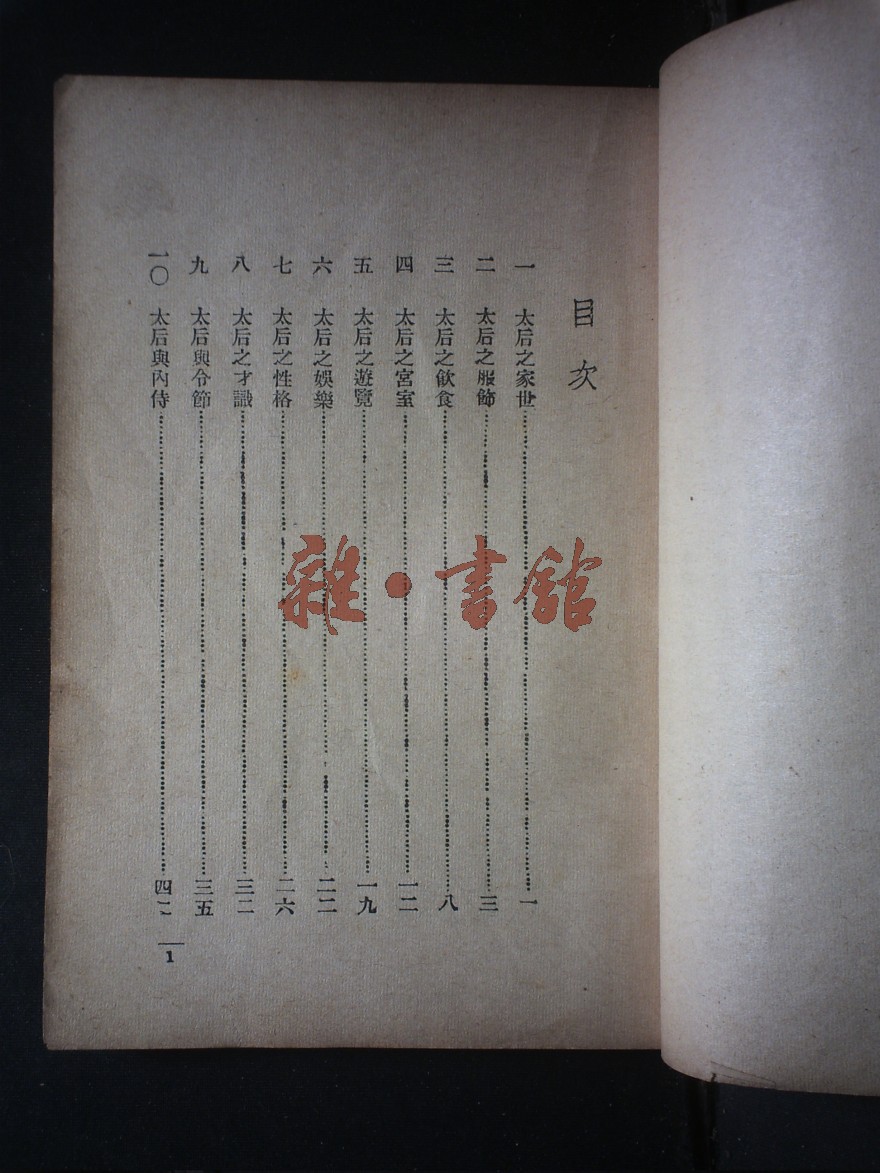 目次
一 太后之家世 一
二 太后之服飾 三
三 太后之飲食 八
四 太后之宮室 一二
五 太后之遊覽 一九
六 太后之娛樂 二二
七 太后之性格 二六
八 太后之才識 三二
九 太后與令節 三五
一〇 太后與內侍 四二
1
雜·書館